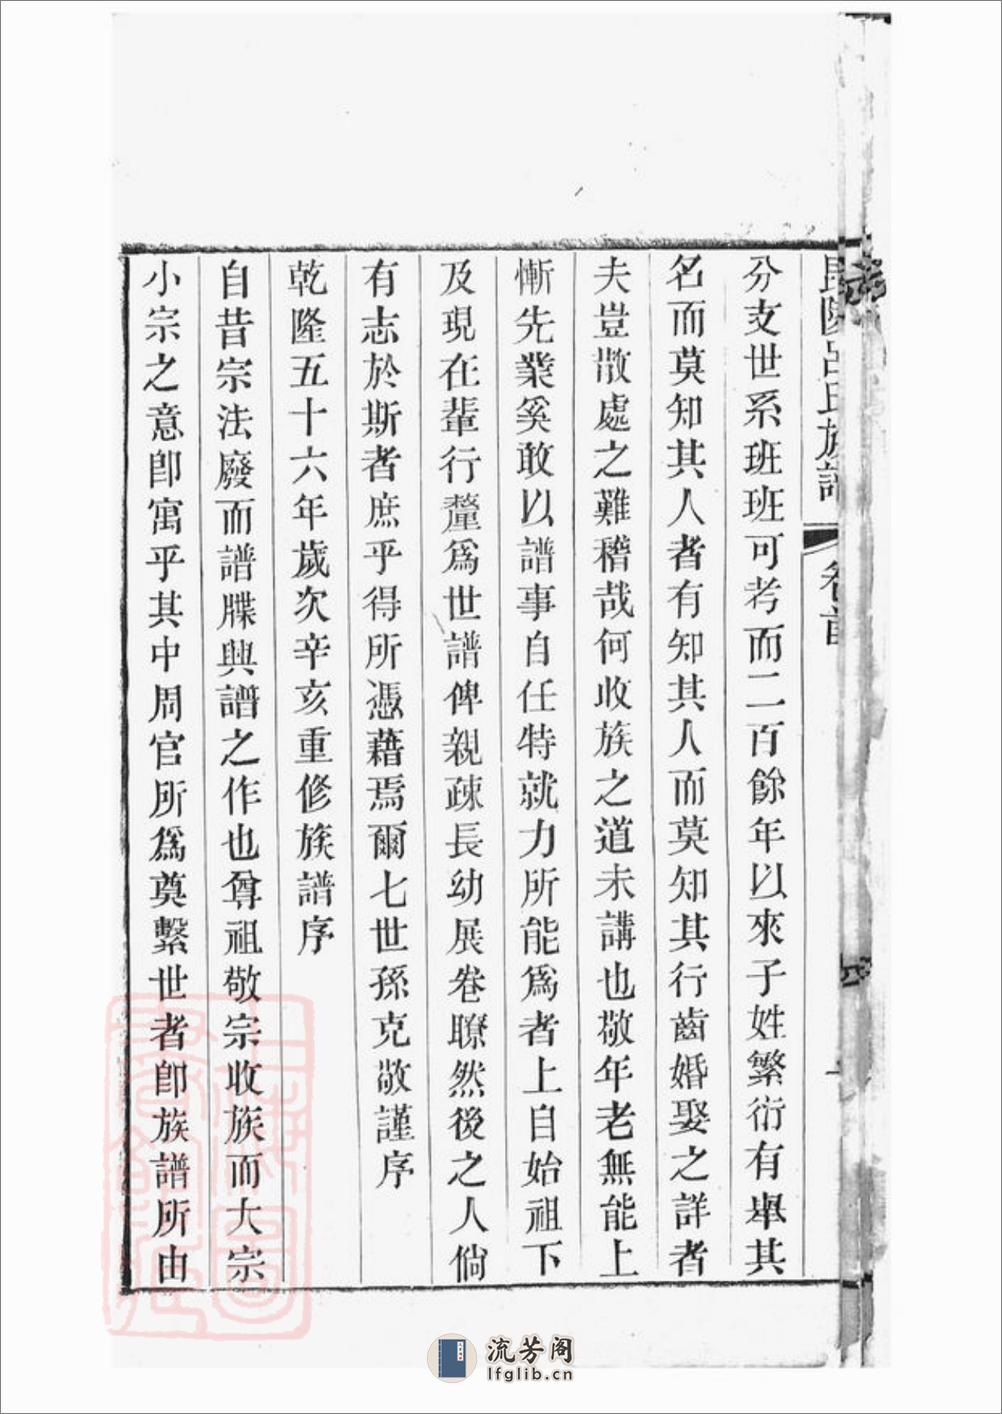 毘陵呂氏族譜 卷首
分支世系班班可考而二百餘年以來子姓繁衍有舉其
名而莫知其人者有知其人而莫知其行齒婚娶之詳者
夫豈散處之難稽哉何收族之道未講也敬年老無能上
慚先業奚敢以譜事自任特就力所能為者上自始祖下
及現在輩行釐為世譜俾親疎長幼展卷瞭然後之人倘
有志於斯者庶乎得所憑藉焉爾七世孫克敬謹序
乾隆五十六年歲次辛亥重修族譜序
自昔宗法廢而譜牒興譜之作也尊祖敬宗收族而大宗
小宗之意卽寓乎其中周官所為奠繫世者卽族譜所由
上海圖書館藏
流芳阁
lfglib.cn